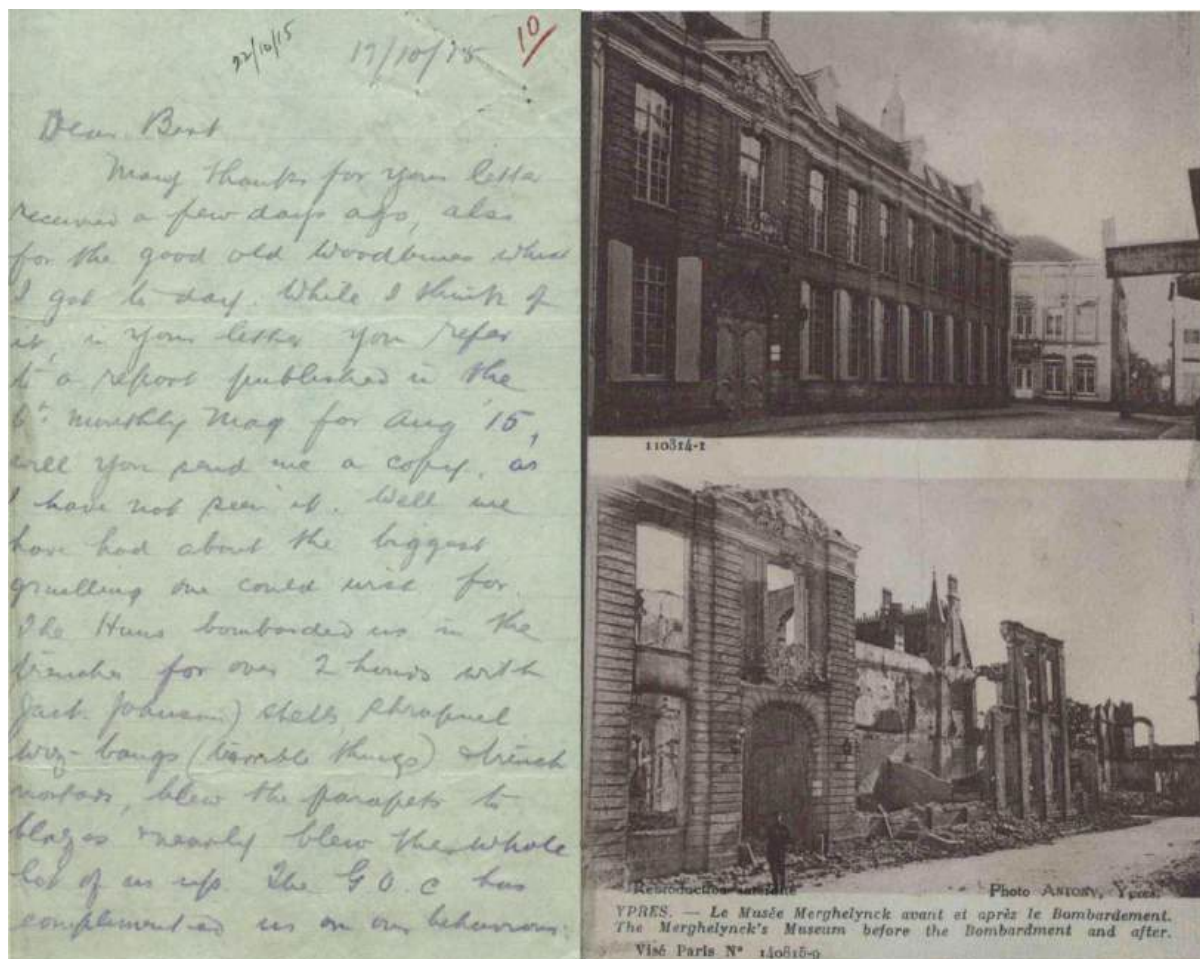 22/10/15
17/10/15
10
Dear Bert
Many thanks for your letter
received a few days ago, also
for the good old Woodbines which
I got to day. While I think of
it, in your letter you refer
to a report published in the
monthly Mag for Aug '15,
will you send me a copy, as
I have not seen it. Well we
have had about the biggest
gruelling one could wish for.
The Huns bombarded us in the
trenches for over 2 hours with
Jack Johnson) shells, shrapnel
wiz-bangs (terrible things) & trench
mortars, blew the parapets to
blazes & nearly blew the whole
lot of us up. The G.O.C has
complimented us on our behaviour.
110814-1
Reproduction interdite
Photo ANTONY, Ypres.
YPRES. — Le Musée Merghelynck avant et après le Bombardement.
The Merghelynck's Museum before the Bombardment and after.
Visé Paris N° 140815-9